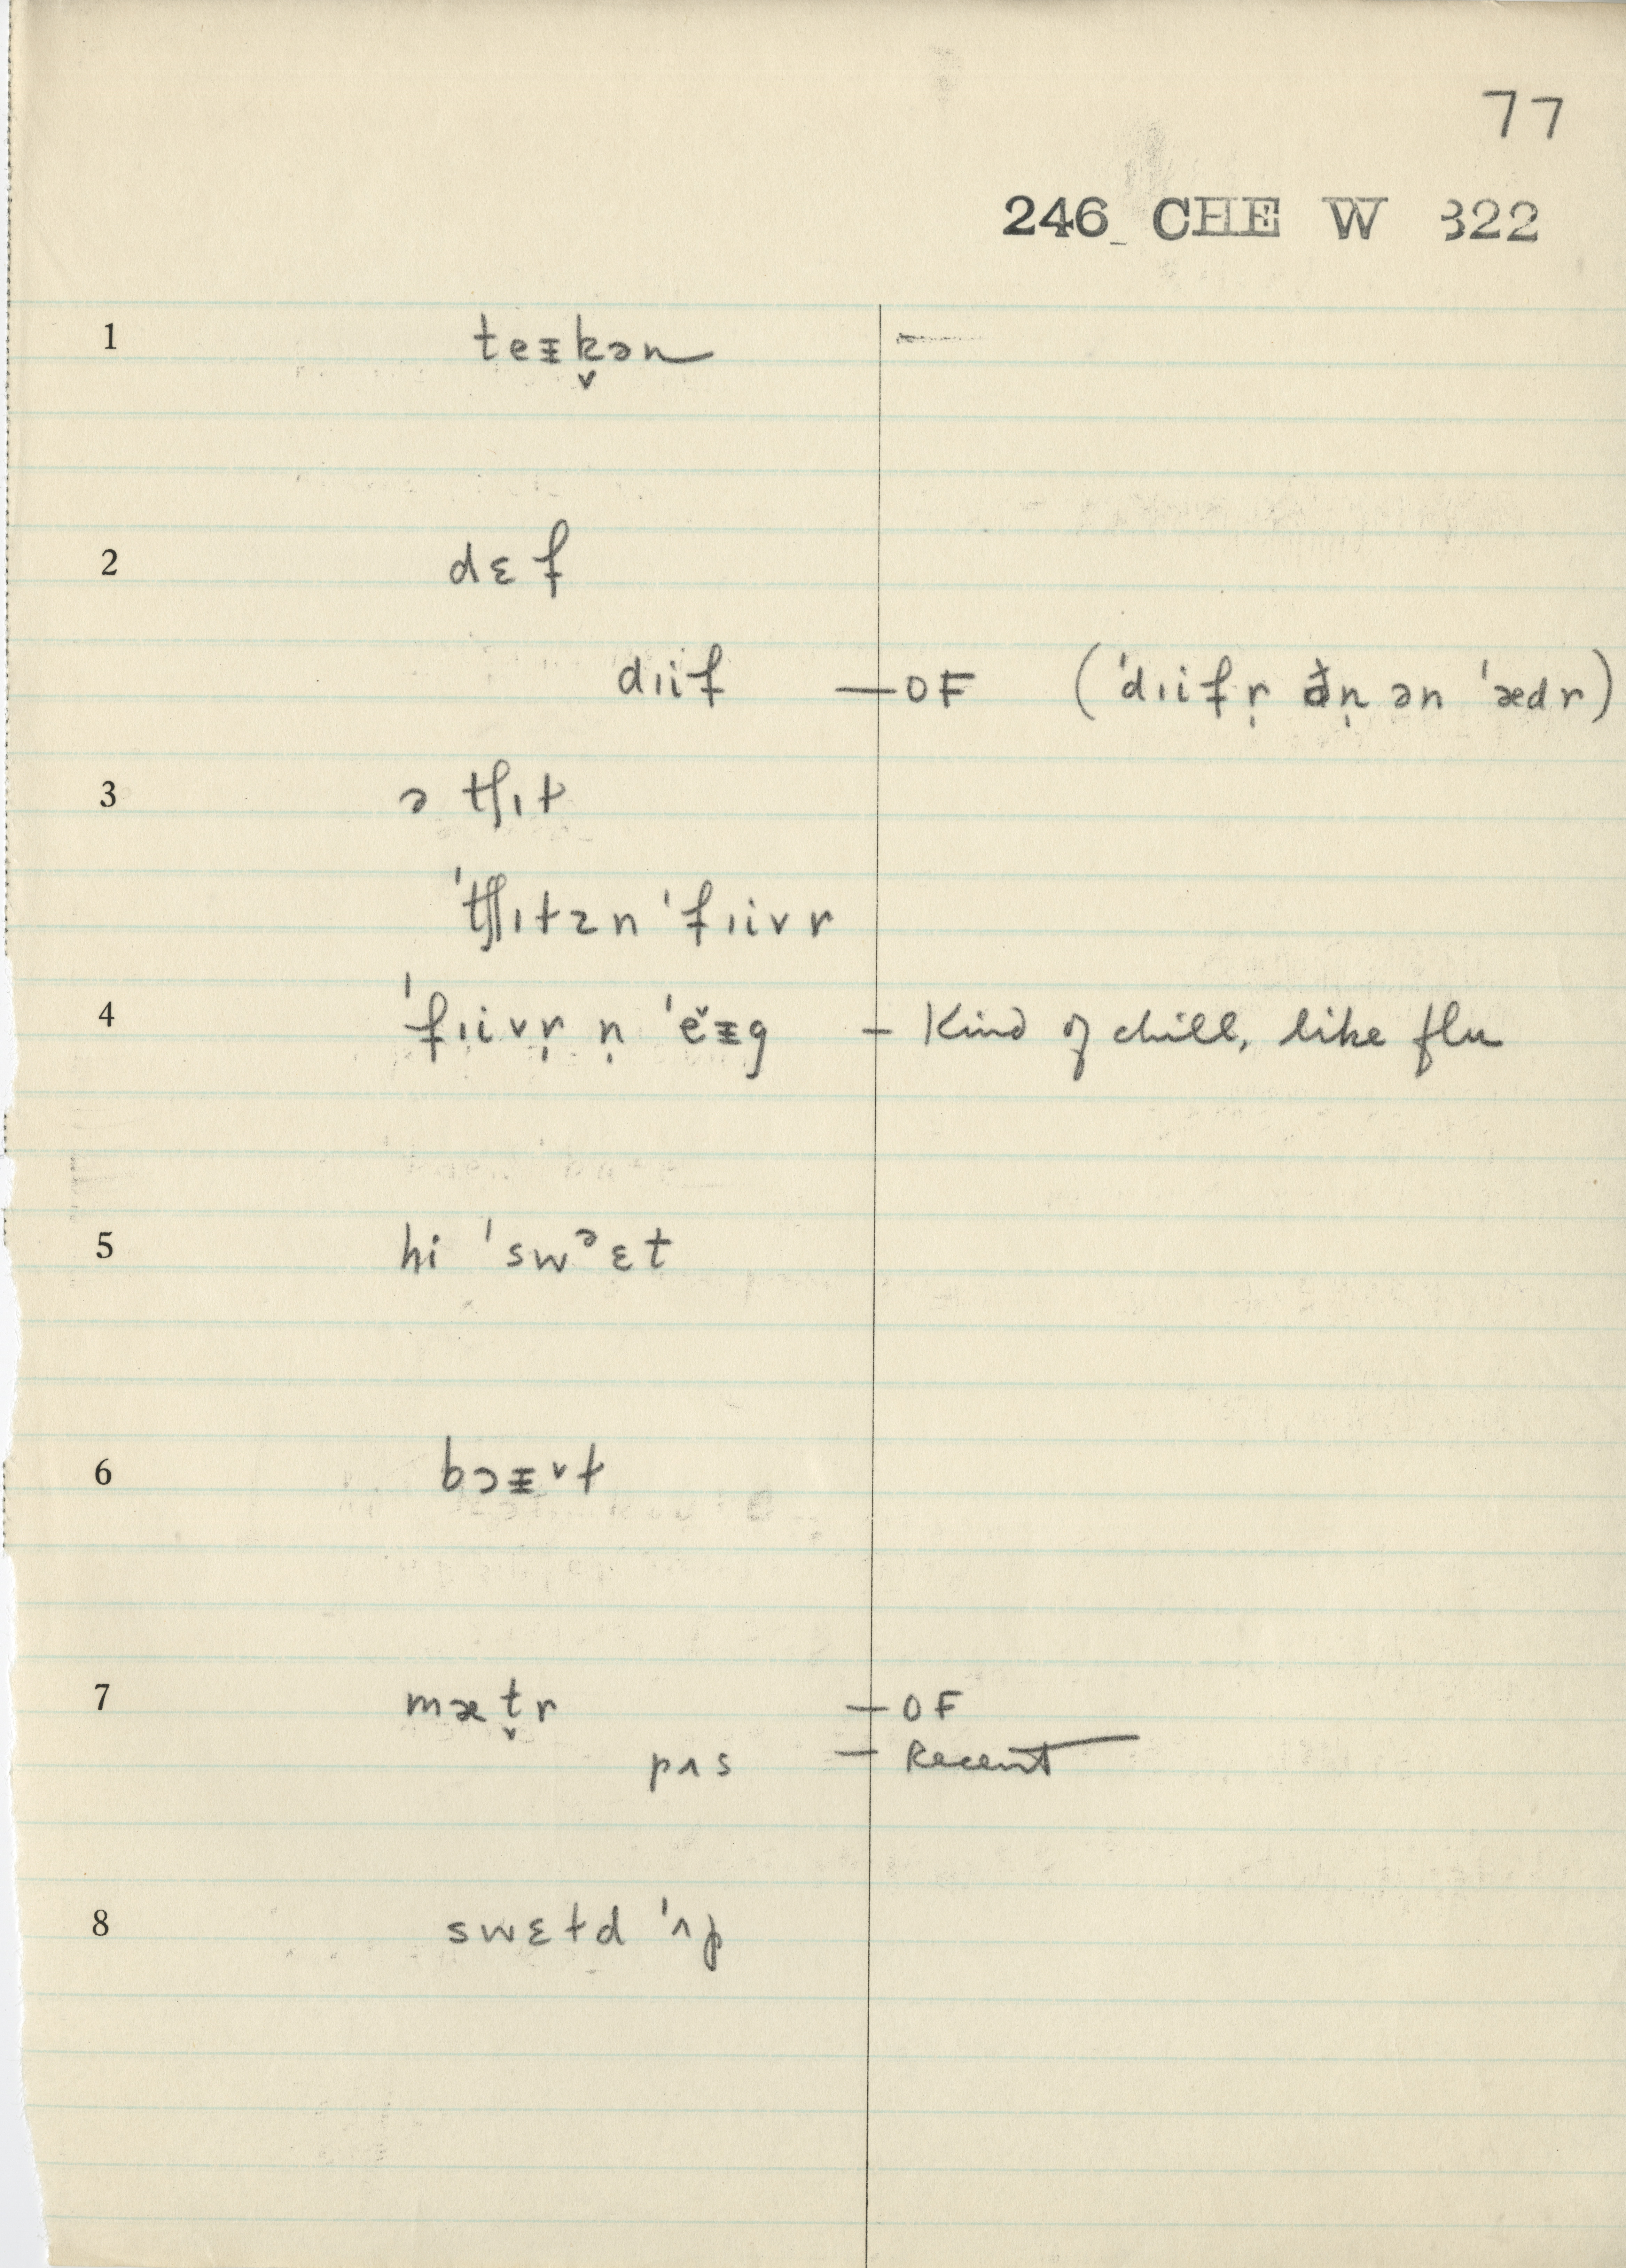 77
246 CHE W 322
1 teᵻk̬ən —
2 dɛf
dɪif — OF (ˈdɪifr̩ ðn̩ ən ˈædr)
3 ə tʃɪt
ˈtʃɪlzn ˈfɪivr
4 ˈfɪivr̩ n̩ ˈěᵻg – Kind of chill, like flu
5 hi ˈswᵊɛt
6 bɔᵻˇɫ
7 mæt̬r — OF
pʌs — Recent
8 swɛtd ˈʌp